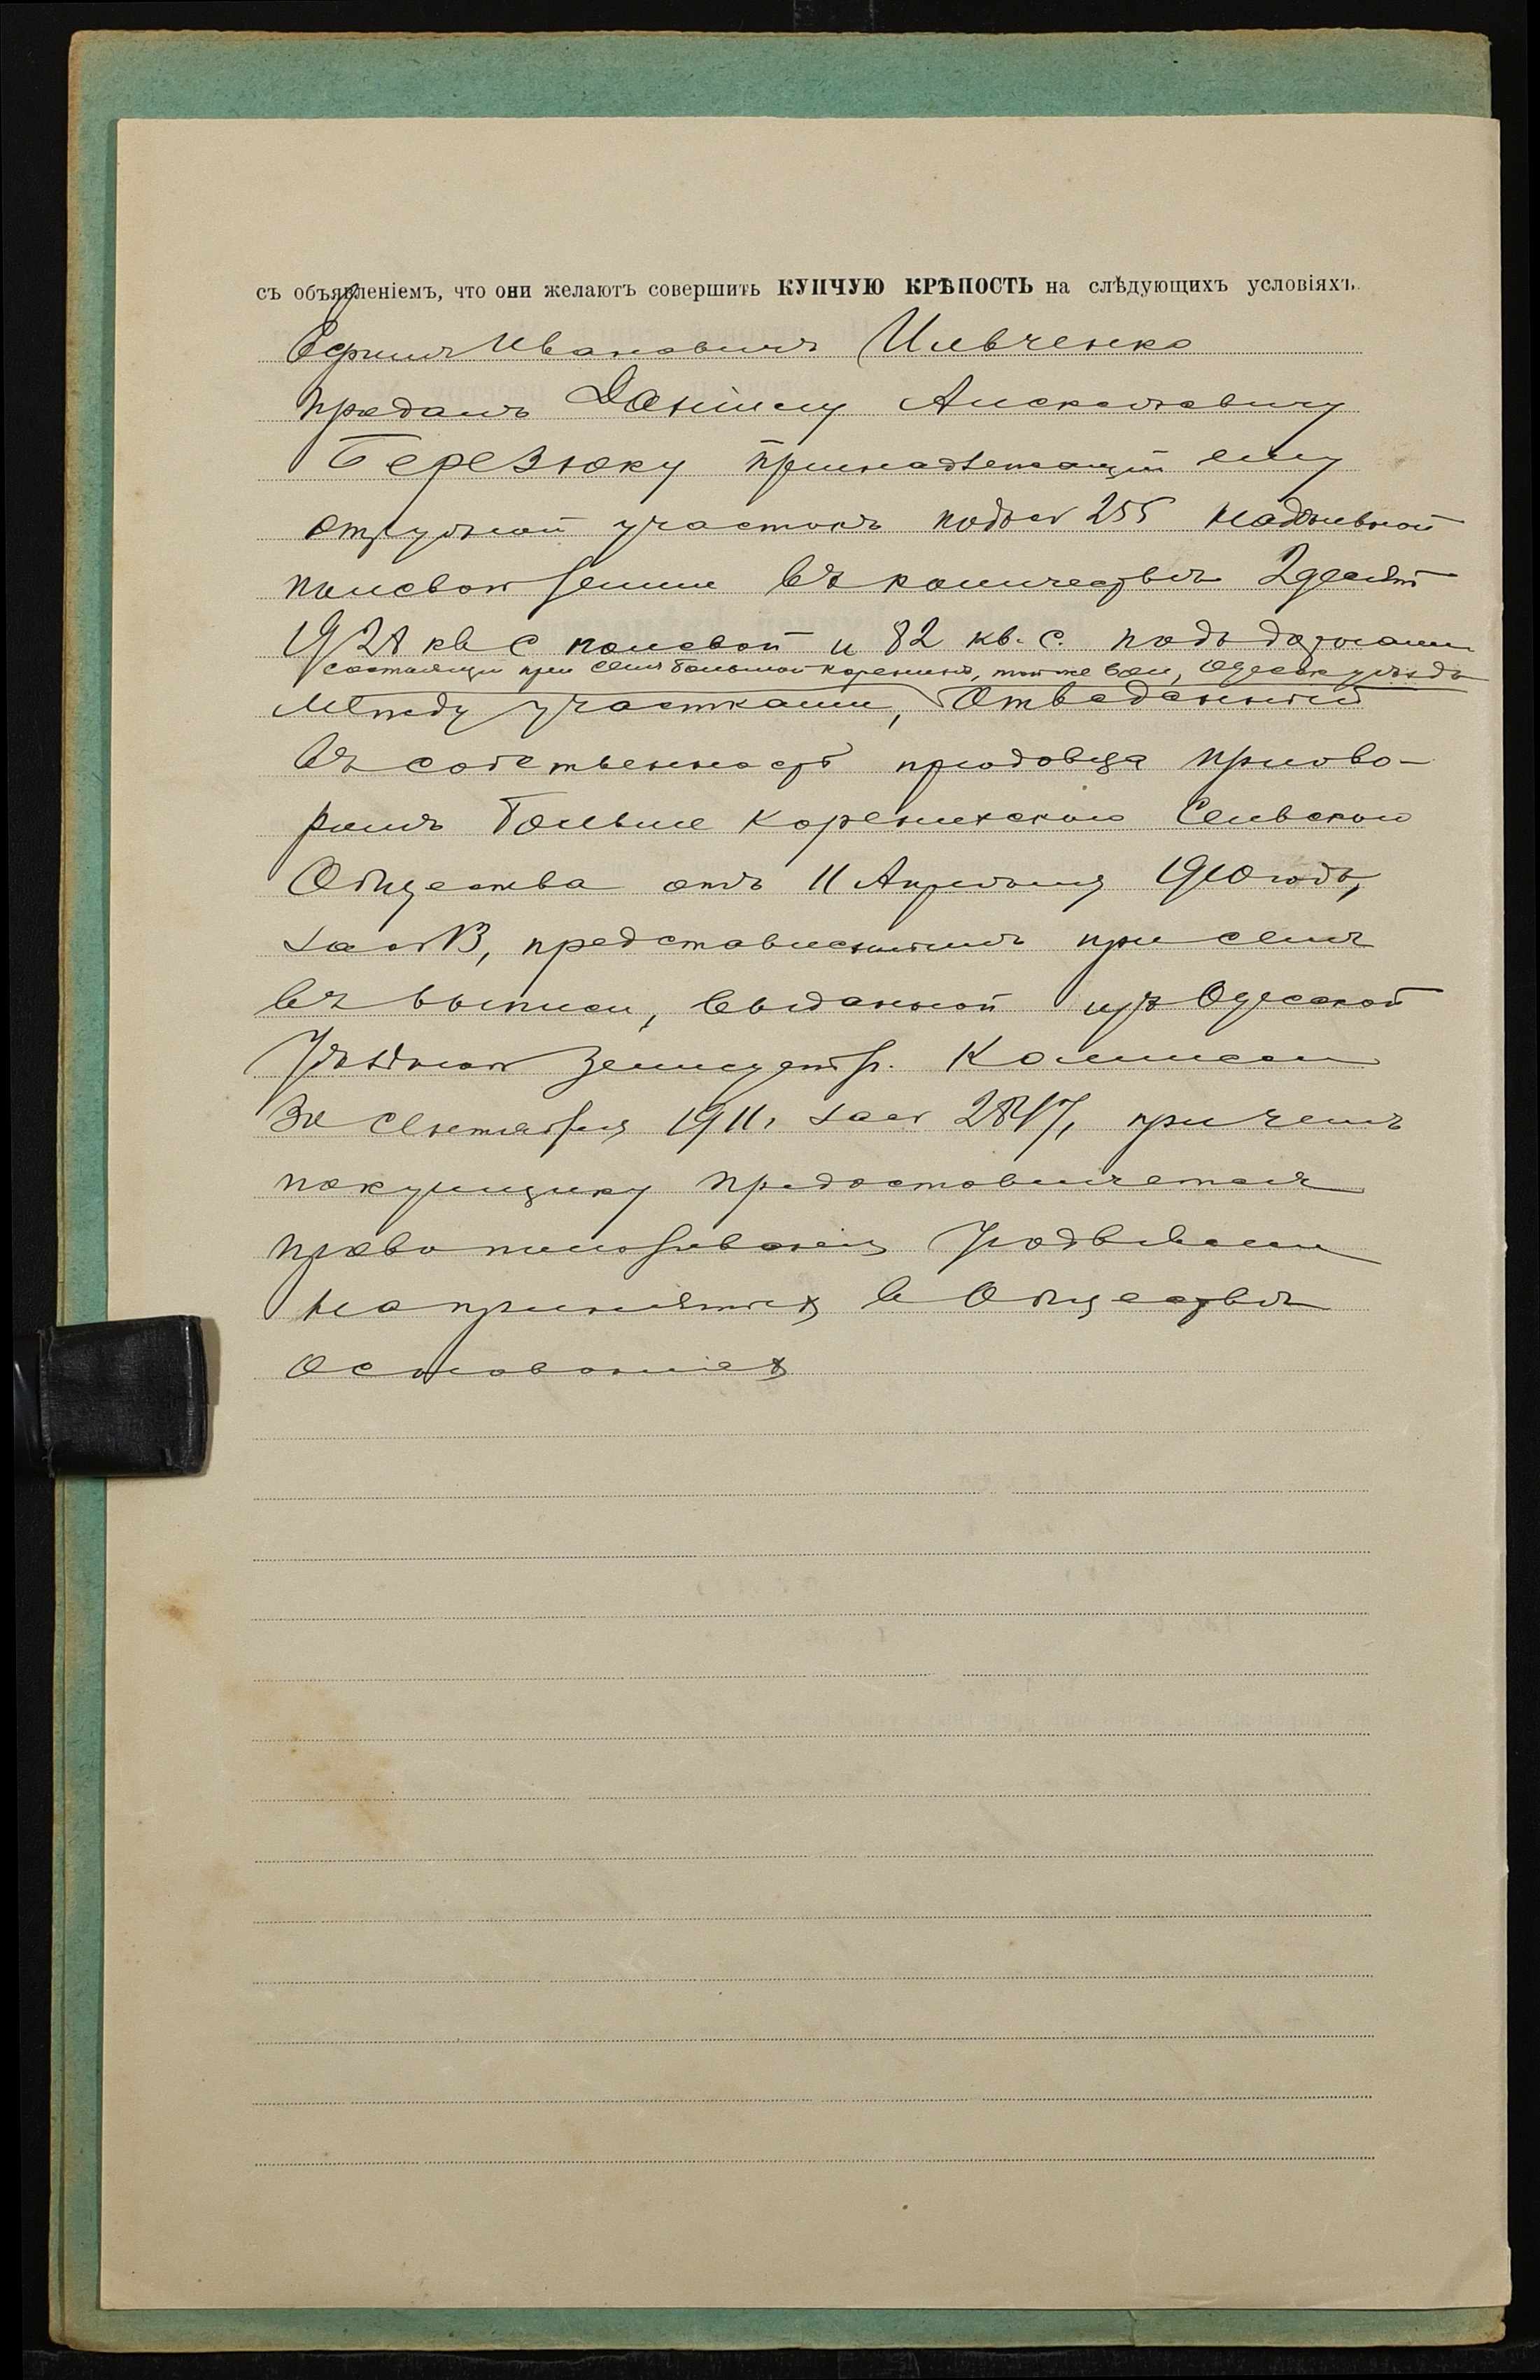 съ объявленіемъ, что они желаютъ совершить КУПЧУЮ КРѢПОСТЬ на слѣдующихъ условіяхъ.
Ефимъ Ивановичъ Ильченко
продалъ Даніилу Алексѣевичу
Березюку принадлежащій ему
отрубной участокъ подъ № 255 надѣльной
полевой земли въ количествѣ 2 десят
1928 кв с полевой и 82 кв. с. подъ дорогами
состоящій при селѣ Большой Коренихѣ, той же вол, Одесск уѣзда
между участками, Отведенный
въ собственность продавца пригово-
ромъ Больше Коренихскаго Сельскаго
Общества отъ 11 Апрѣля 1910 года,
за № 13, представленнымъ при семъ
въ выписи, выданной изъ Одесской
Уѣздной Землеустр. Комиссіи
30 Сентября 1911, за № 2817, при чемъ
покупщику предоставляется
право пользованія
на принятыхъ въ Обществѣ
основаніяхъ